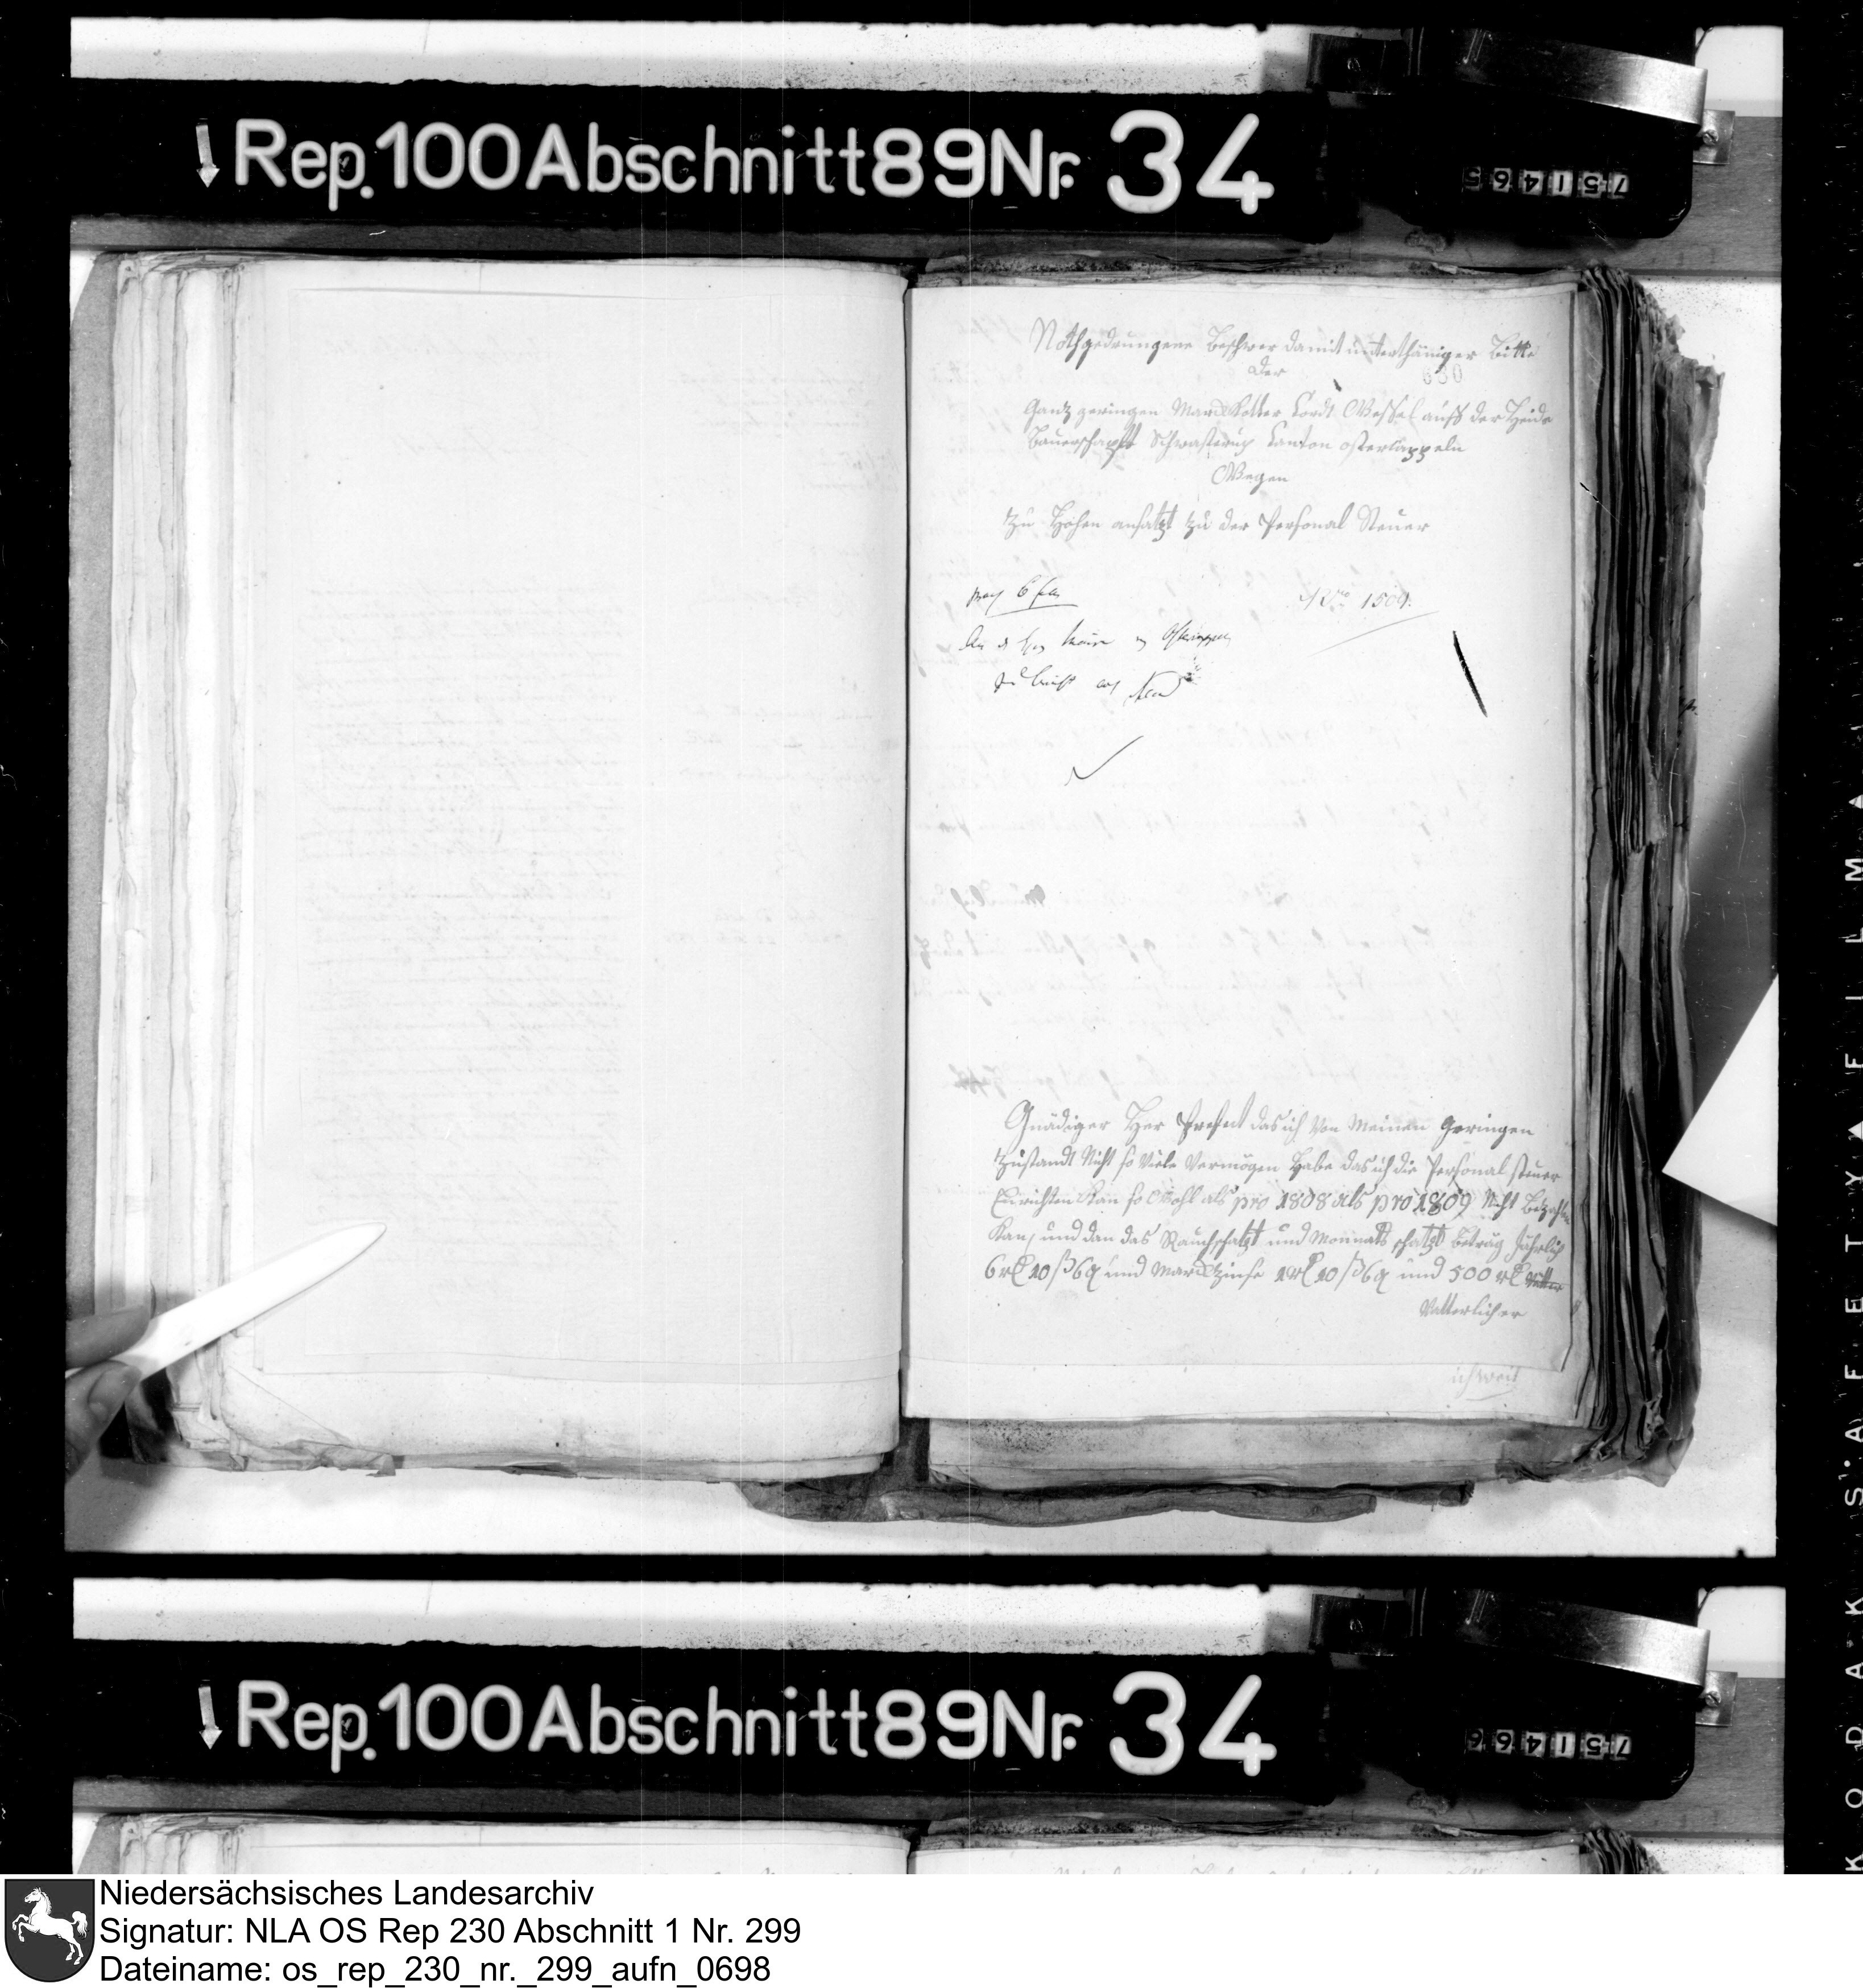 Rep. 100 Abschnitt 89 Nr. 34
751465
Nothgedrungene Beschwer damit unterthäniger Bitte
der
630
Gantz geringen Marckkötter Cordt Wessel auf der Heide
Bauerschapft Schwastrup Canton ostercappeln
Wegen
zu Hohen ansatzt zu der Personal Steuer
Nro 1509.
An d Hrn Maire
zu
Gnädiger Her Prefect das ich Von Meinen Geringen
zustandt Nicht so Viele Vermögen Habe das ich die Personal steuer
Einrichten Kan so Wohl als pro 1808 als pro 1809 Nicht Bezahlen
Kan, und dan das Rauchschatzt und Monnats schatzt Betrag Jährlich
6 rl 10 ß 6 q und Marckzinse 1 rl 10 ß 6 q und 500 rl
Vatterlicher
ich weis
Rep. 100 Abschnitt 89 Nr. 34
751466
KODAK SAFETY FILM
Niedersächsisches Landesarchiv
Signatur: NLA OS Rep 230 Abschnitt 1 Nr. 299
Dateiname: os_rep_230_nr._299_aufn_0698